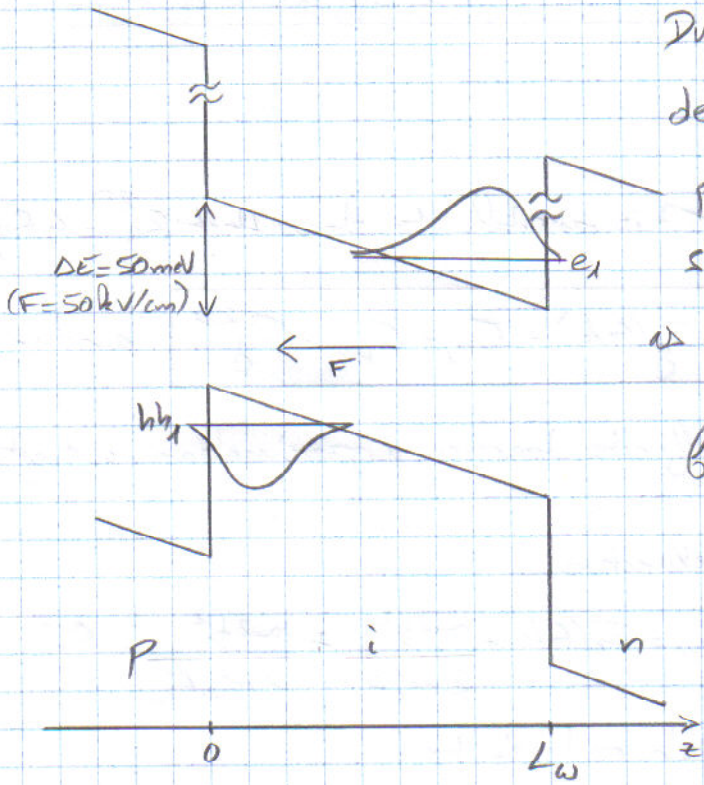 ΔE=50meV
(F=50kV/cm)
F
e₁
hh₁
p
i
n
0
L_w
z